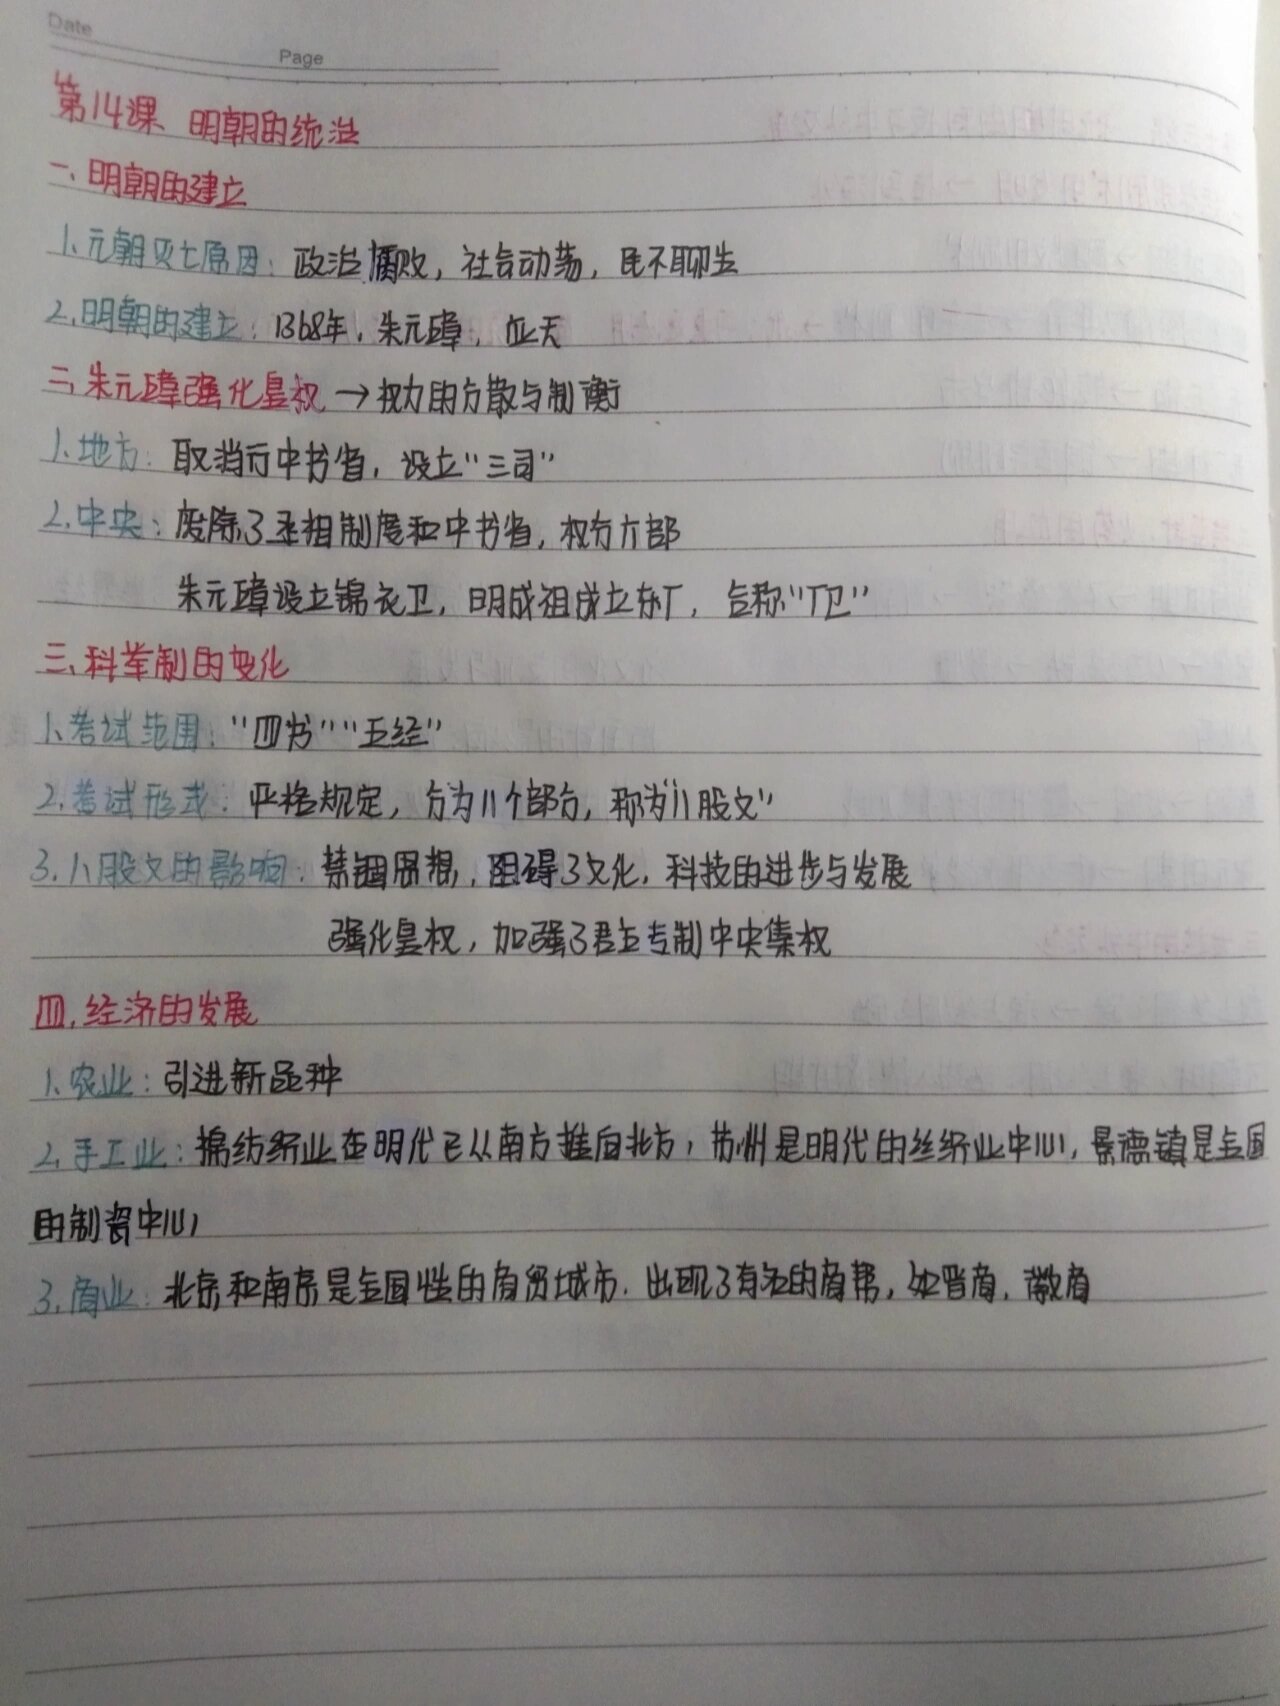 Date
Page
第14课 明朝的统治
一、明朝的建立
1.元朝灭亡原因：政治腐败，社会动荡，民不聊生
2.明朝的建立：1368年，朱元璋，应天
二、朱元璋强化皇权→权力的分散与制衡
1.地方：取消行中书省，设立“三司”
2.中央：废除了丞相制度和中书省，权分六部
朱元璋设立锦衣卫，明成祖成立东厂，合称“厂卫”
三、科举制的变化
1.考试范围：“四书”“五经”
2.考试形式：严格规定，分为八个部分，称为“八股文”
3.八股文的影响：禁锢思想，阻碍了文化，科技的进步与发展
强化皇权，加强了君主专制中央集权
四、经济的发展
1.农业：引进新品种
2.手工业：棉纺织业在明代已从南方推向北方，苏州是明代的丝织业中心，景德镇是全国
的制瓷中心
3.商业：北京和南京是全国性的商贸城市．出现了有名的商帮，如晋商，徽商